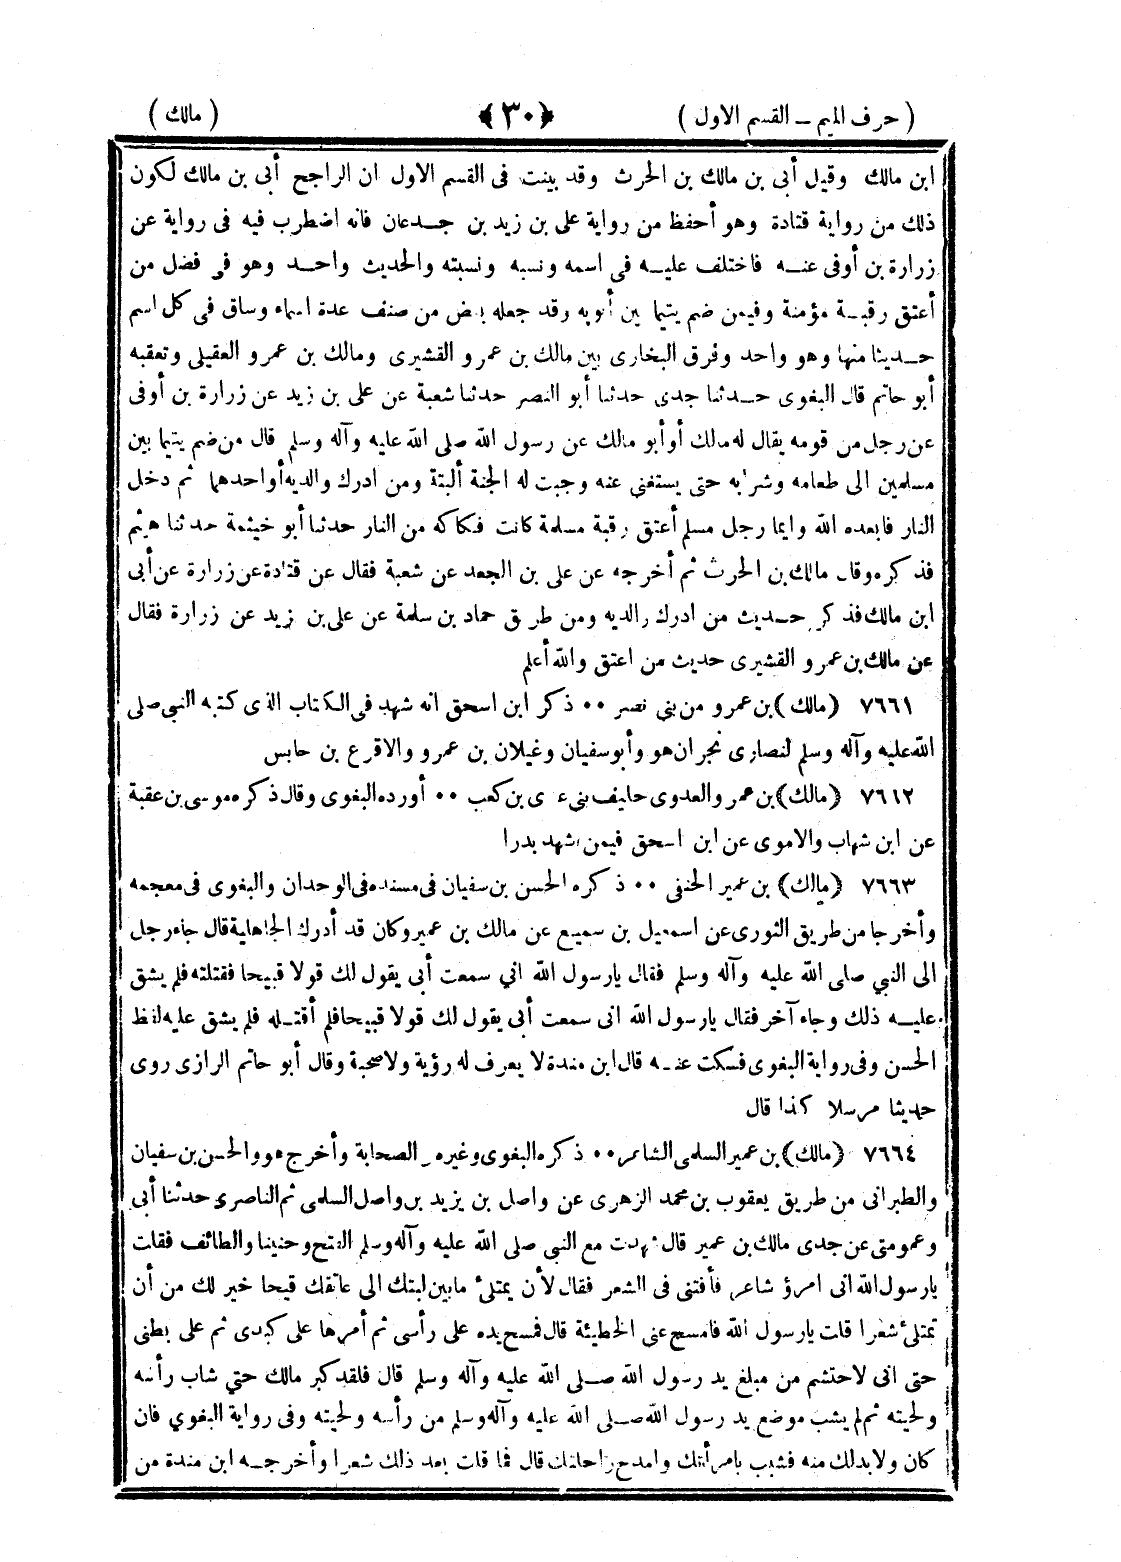 ( حرف الميم ــ القسم الاول ) ﴿٣٠﴾ ( مالك )
ابن مالك وقيل أبى بن مالك بن الحرث وقد بينت فى القسم الاول ان الراجح أبى بن مالك لكون
ذلك من رواية قتادة وهو أحفظ من رواية على بن زيد بن جدعان فانه اضطرب فيه فى رواية عن
زرارة بن أوفى عنه فاختلف عليه فى اسمه ونسبه ونسبته والحديث واحد وهو فى فضل من
أعتق رقبة مؤمنة وفيمن ضم يتيما بين أبويه وقد جعله بعض من صنف عدة اسماء وساق فى كل اسم
حديثا منها وهو واحد وفرق البخارى بين مالك بن عمرو القشيرى ومالك بن عمرو العقيلى وتعقبه
أبو حاتم قال البغوى حدثنا جدى حدثنا أبو النصر حدثنا شعبة عن على بن زيد عن زرارة بن أوفى
عن رجل من قومه يقال له مالك أو أبو مالك عن رسول الله صلى الله عليه وآله وسلم قال من ضم يتيما بين
مسلمين الى طعامه وشرابه حتى يستغنى عنه وجبت له الجنة ألبتة ومن ادرك والديه أو احدهما ثم دخل
النار فابعده الله وايما رجل مسلم أعتق رقبة مسلمة كانت فكاكه من النار حدثنا أبو خيثمة حدثنا هيثم
فذكره وقال مالك بن الحرث ثم أخرجه عن على بن الجعد عن شعبة فقال عن قتادة عن زرارة عن أبى
ابن مالك فذكر حديث من ادرك والديه ومن طريق حماد بن سلمة عن على بن زيد عن زرارة فقال
عن مالك بن عمرو القشيرى حديث من اعتق والله أعلم
٧٦٦١ (مالك) بن عمرو من بني نصر ٠٠ ذكر ابن اسحق انه شهد فى الكتاب الذى كتبه النبي صلى
الله عليه وآله وسلم لنصارى نجران هو وأبو سفيان وغيلان بن عمرو والاقرع بن حابس
٧٦٦٢ (مالك) بن عمرو العدوى حليف بنى عدى بن كعب ٠٠ أورده البغوى وقال ذكره موسى بن عقبة
عن ابن شهاب والاموى عن ابن اسحق فيمن شهد بدرا
٧٦٦٣ (مالك) بن عمير الحنفى ٠٠ ذكره الحسن بن سفيان فى مسنده فى الوحدان والبغوى فى معجمه
وأخرجا من طريق الثورى عن اسمعيل بن سميع عن مالك بن عمير وكان قد أدرك الجاهلية قال جاء رجل
الى النبي صلى الله عليه وآله وسلم فقال يارسول الله اني سمعت أبى يقول لك قولا قبيحا فقتلته فلم يشق
عليه ذلك وجاء آخر فقال يارسول الله انى سمعت أبي يقول لك قولا قبيحا فلم أقتله فلم يشق عليه لفظ
الحسن وفى رواية البغوى فسكت عنه قال ابن مندة لا يعرف له رؤية ولا صحبة وقال أبو حاتم الرازى روى
حديثا مرسلا كذا قال
٧٦٦٤ (مالك) بن عمير السلمى الشاعر ٠٠ ذكره البغوى وغيره فى الصحابة وأخرج هو والحسن بن سفيان
والطبرانى من طريق يعقوب بن محمد الزهرى عن واصل بن يزيد بن واصل السلمى ثم الناصرى حدثنا أبى
وعمومتى عن جدى مالك بن عمير قال شهدت مع النبي صلى الله عليه وآله وسلم الفتح وحنينا والطائف فقلت
يارسول الله انى امرؤ شاعر فأفتنى فى الشعر فقال لأن يمتلئ مابين لبتك الى عاتقك قيحا خير لك من أن
تمتلئ شعرا قلت يارسول الله فامسح عنى الخطيئة قال فمسح يده على رأسى ثم أمرها على كبدى ثم على بطنى
حتى انى لاحتشم من مبلغ يد رسول الله صلى الله عليه وآله وسلم قال فلقد كبر مالك حتي شاب رأسه
ولحيته ثم لم يشب موضع يد رسول الله صلى الله عليه وآله وسلم من رأسه ولحيته وفى رواية البغوي فان
كان ولابدلك منه فشبب بامرأتك وامدح راحلتك قال فما قلت بعد ذلك شعرا وأخرجه ابن مندة من